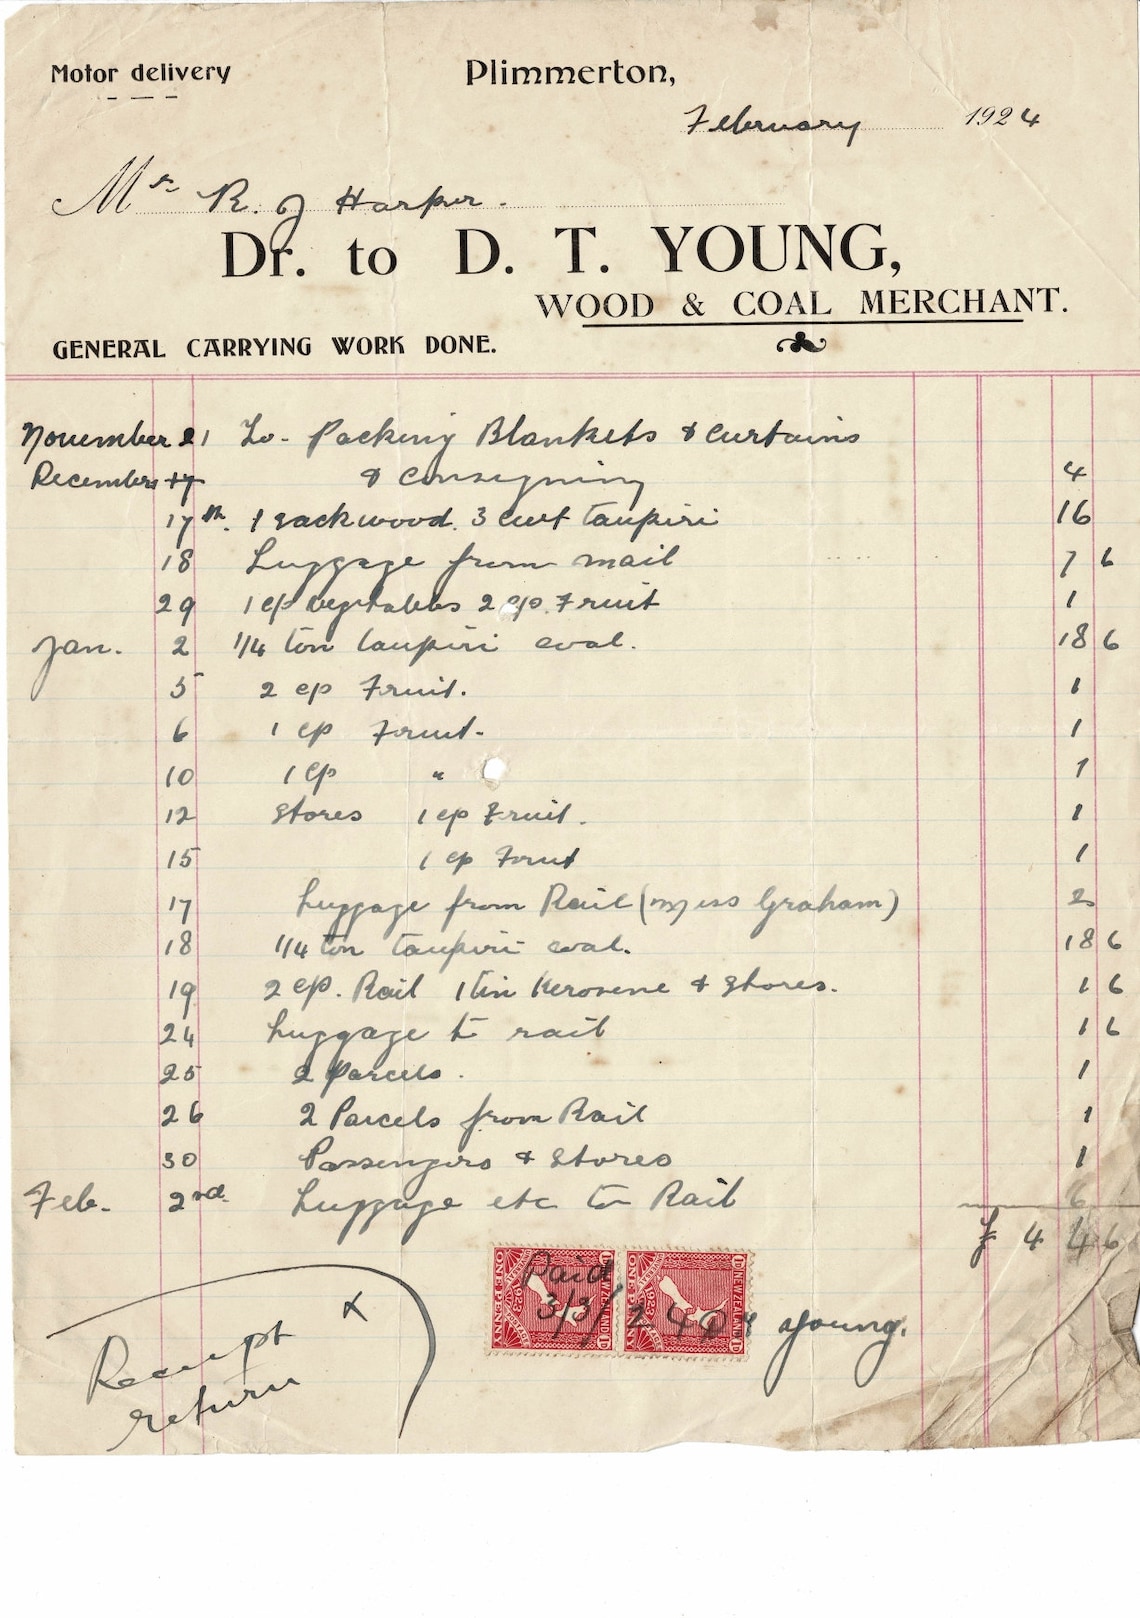 Motor delivery
Plimmerton,
February 1924
Mr R. J Harper.
Dr. to D. T. YOUNG,
WOOD & COAL MERCHANT.
GENERAL CARRYING WORK DONE.
November 21 To- Packing Blankets & Curtains
December 17 & Consigning 4
17th. 1 sack wood. 3 cwt taupiri 16
18 Luggage from mail 7 6
29 1 c/p vegetables 2 c/p. Fruit 1
Jan. 2 1/4 ton taupiri coal. 18 6
5 2 cp Fruit. 1
6 1 cp Fruit. 1
10 1 cp " 1
12 Stores 1 cp Fruit. 1
15 1 cp Fruit 1
17 Luggage from Rail (Miss Graham) 2
18 1/4 ton taupiri coal. 18 6
19 2 cp. Rail 1 tin Kerosene & Stores. 1 6
24 Luggage to rail 1 6
25 2 Parcels. 1
26 2 Parcels from Rail 1
30 Passengers & Stores 1
Feb. 2nd. Luggage etc to Rail 6
£ 4 4 6
Paid
3/3/24 D Young.
ONE PENNY 1923 NEW ZEALAND 1D
ONE PENNY 1923 NEW ZEALAND 1D
x
Receipt
return